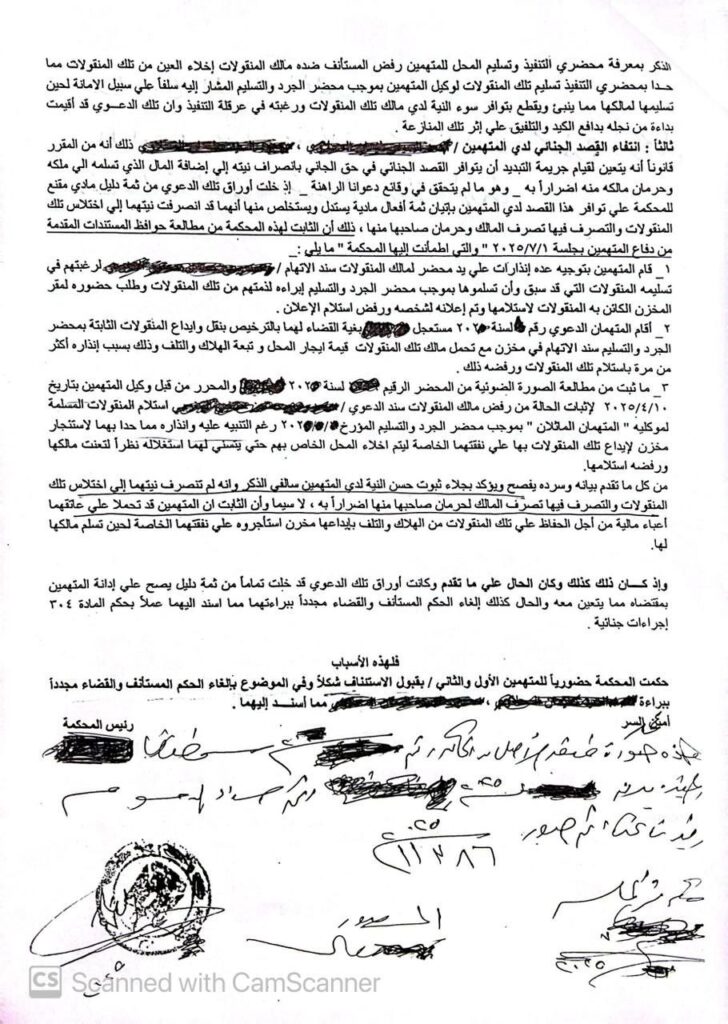 الذكر بمعرفة محضري التنفيذ وتسليم المحل للمتهمين رفض المستأنف ضده مالك المنقولات إخلاء العين من تلك المنقولات مما
حدا بمحضري التنفيذ تسليم تلك المنقولات لوكيل المتهمين بموجب محضر الجرد والتسليم المشار إليه سلفاً علي سبيل الامانة لحين
تسليمها لمالكها مما ينبئ ويقطع بتوافر سوء النية لدي مالك تلك المنقولات ورغبته في عرقلة التنفيذ وان تلك الدعوي قد أقيمت
بداءة من نجله بدافع الكيد والتلفيق علي إثر تلك المنازعة .
ثالثاً : انتفاء القصد الجنائي لدي المتهمين / ، ذلك أنه من المقرر
قانوناً أنه يتعين لقيام جريمة التبديد أن يتوافر القصد الجنائي في حق الجاني بانصراف نيته إلي إضافة المال الذي تسلمه الي ملكه
وحرمان مالكه منه اضراراً به _ وهو ما لم يتحقق في وقائع دعوانا الراهنة _ إذ خلت أوراق تلك الدعوي من ثمة دليل مادي مقنع
للمحكمة علي توافر هذا القصد لدي المتهمين بإتيان ثمة أفعال مادية يستدل ويستخلص منها أنهما قد انصرفت نيتهما إلي اختلاس تلك
المنقولات والتصرف فيها تصرف المالك وحرمان صاحبها منها ، ذلك أن الثابت لهذه المحكمة من مطالعة حوافظ المستندات المقدمة
من دفاع المتهمين بجلسة ٢٠٢٥/٧/١ " والتي اطمأنت إليها المحكمة " ما يلي :_
١_ قام المتهمين بتوجيه عده إنذارات علي يد محضر لمالك المنقولات سند الاتهام / لرغبتهم في
تسليمه المنقولات التي قد سبق وأن تسلموها بموجب محضر الجرد والتسليم إبراءه لذمتهم من تلك المنقولات وطلب حضوره لمقر
المخزن الكائن به المنقولات لاستلامها وتم إعلانه لشخصه ورفض استلام الإعلان .
٢_ أقام المتهمان الدعوي رقم لسنة مستعجل بغية القضاء لهما بالترخيص بنقل وايداع المنقولات الثابتة بمحضر
الجرد والتسليم سند الاتهام في مخزن مع تحمل مالك تلك المنقولات قيمة ايجار المحل و تبعة الهلاك والتلف وذلك بسبب إنذاره أكثر
من مرة باستلام تلك المنقولات ورفضه ذلك .
٣_ ما ثبت من مطالعة الصورة الضوئية من المحضر الرقيم لسنة والمحرر من قبل وكيل المتهمين بتاريخ
٢٠٢٥/٤/١٠ لإثبات الحالة من رفض مالك المنقولات سند الدعوي / استلام المنقولات المسلمة
لموكليه " المتهمان الماثلان " بموجب محضر الجرد والتسليم المؤرخ رغم التنبيه عليه وانذاره مما حدا بهما لاستنجار
مخزن لإيداع تلك المنقولات بها علي نفقتهما الخاصة ليتم اخلاء المحل الخاص بهم حتي يتسني لهما استغلاله نظراً لتعنت مالكها
ورفضه استلامها.
من كل ما تقدم بيانه وسرده يفصح ويؤكد بجلاء ثبوت حسن النية لدي المتهمين سالفي الذكر وانه لم تنصرف نيتهما إلي اختلاس تلك
المنقولات والتصرف فيها تصرف المالك لحرمان صاحبها منها اضراراً به ، لا سيما وأن الثابت ان المتهمين قد تحملا علي عاتقهما
أعباء مالية من أجل الحفاظ علي تلك المنقولات من الهلاك والتلف بإيداعها مخزن استأجروه علي نفقتهما الخاصة لحين تسلم مالكها
لها.
وإذ كـــان ذلك كذلك وكان الحال علي ما تقدم وكانت أوراق تلك الدعوي قد خلت تماماً من ثمة دليل يصح علي إدانة المتهمين
بمقتضاه مما يتعين معه والحال كذلك إلغاء الحكم المستأنف والقضاء مجدداً ببراءتهما مما اسند اليهما عملاً بحكم المادة ٣٠٤
إجراءات جنائية .
فلهذه الأسباب
حكمت المحكمة حضورياً للمتهمين الأول والثاني / بقبول الاستئناف شكلاً وفي الموضوع بإلغاء الحكم المستأنف والقضاء مجدداً
ببراءة ، مما أسند إليهما .
أمين السر
رئيس المحكمة
هذه صورة طبق الأصل
٢٠٢٥
٢١١٣٨٦
CS Scanned with CamScanner